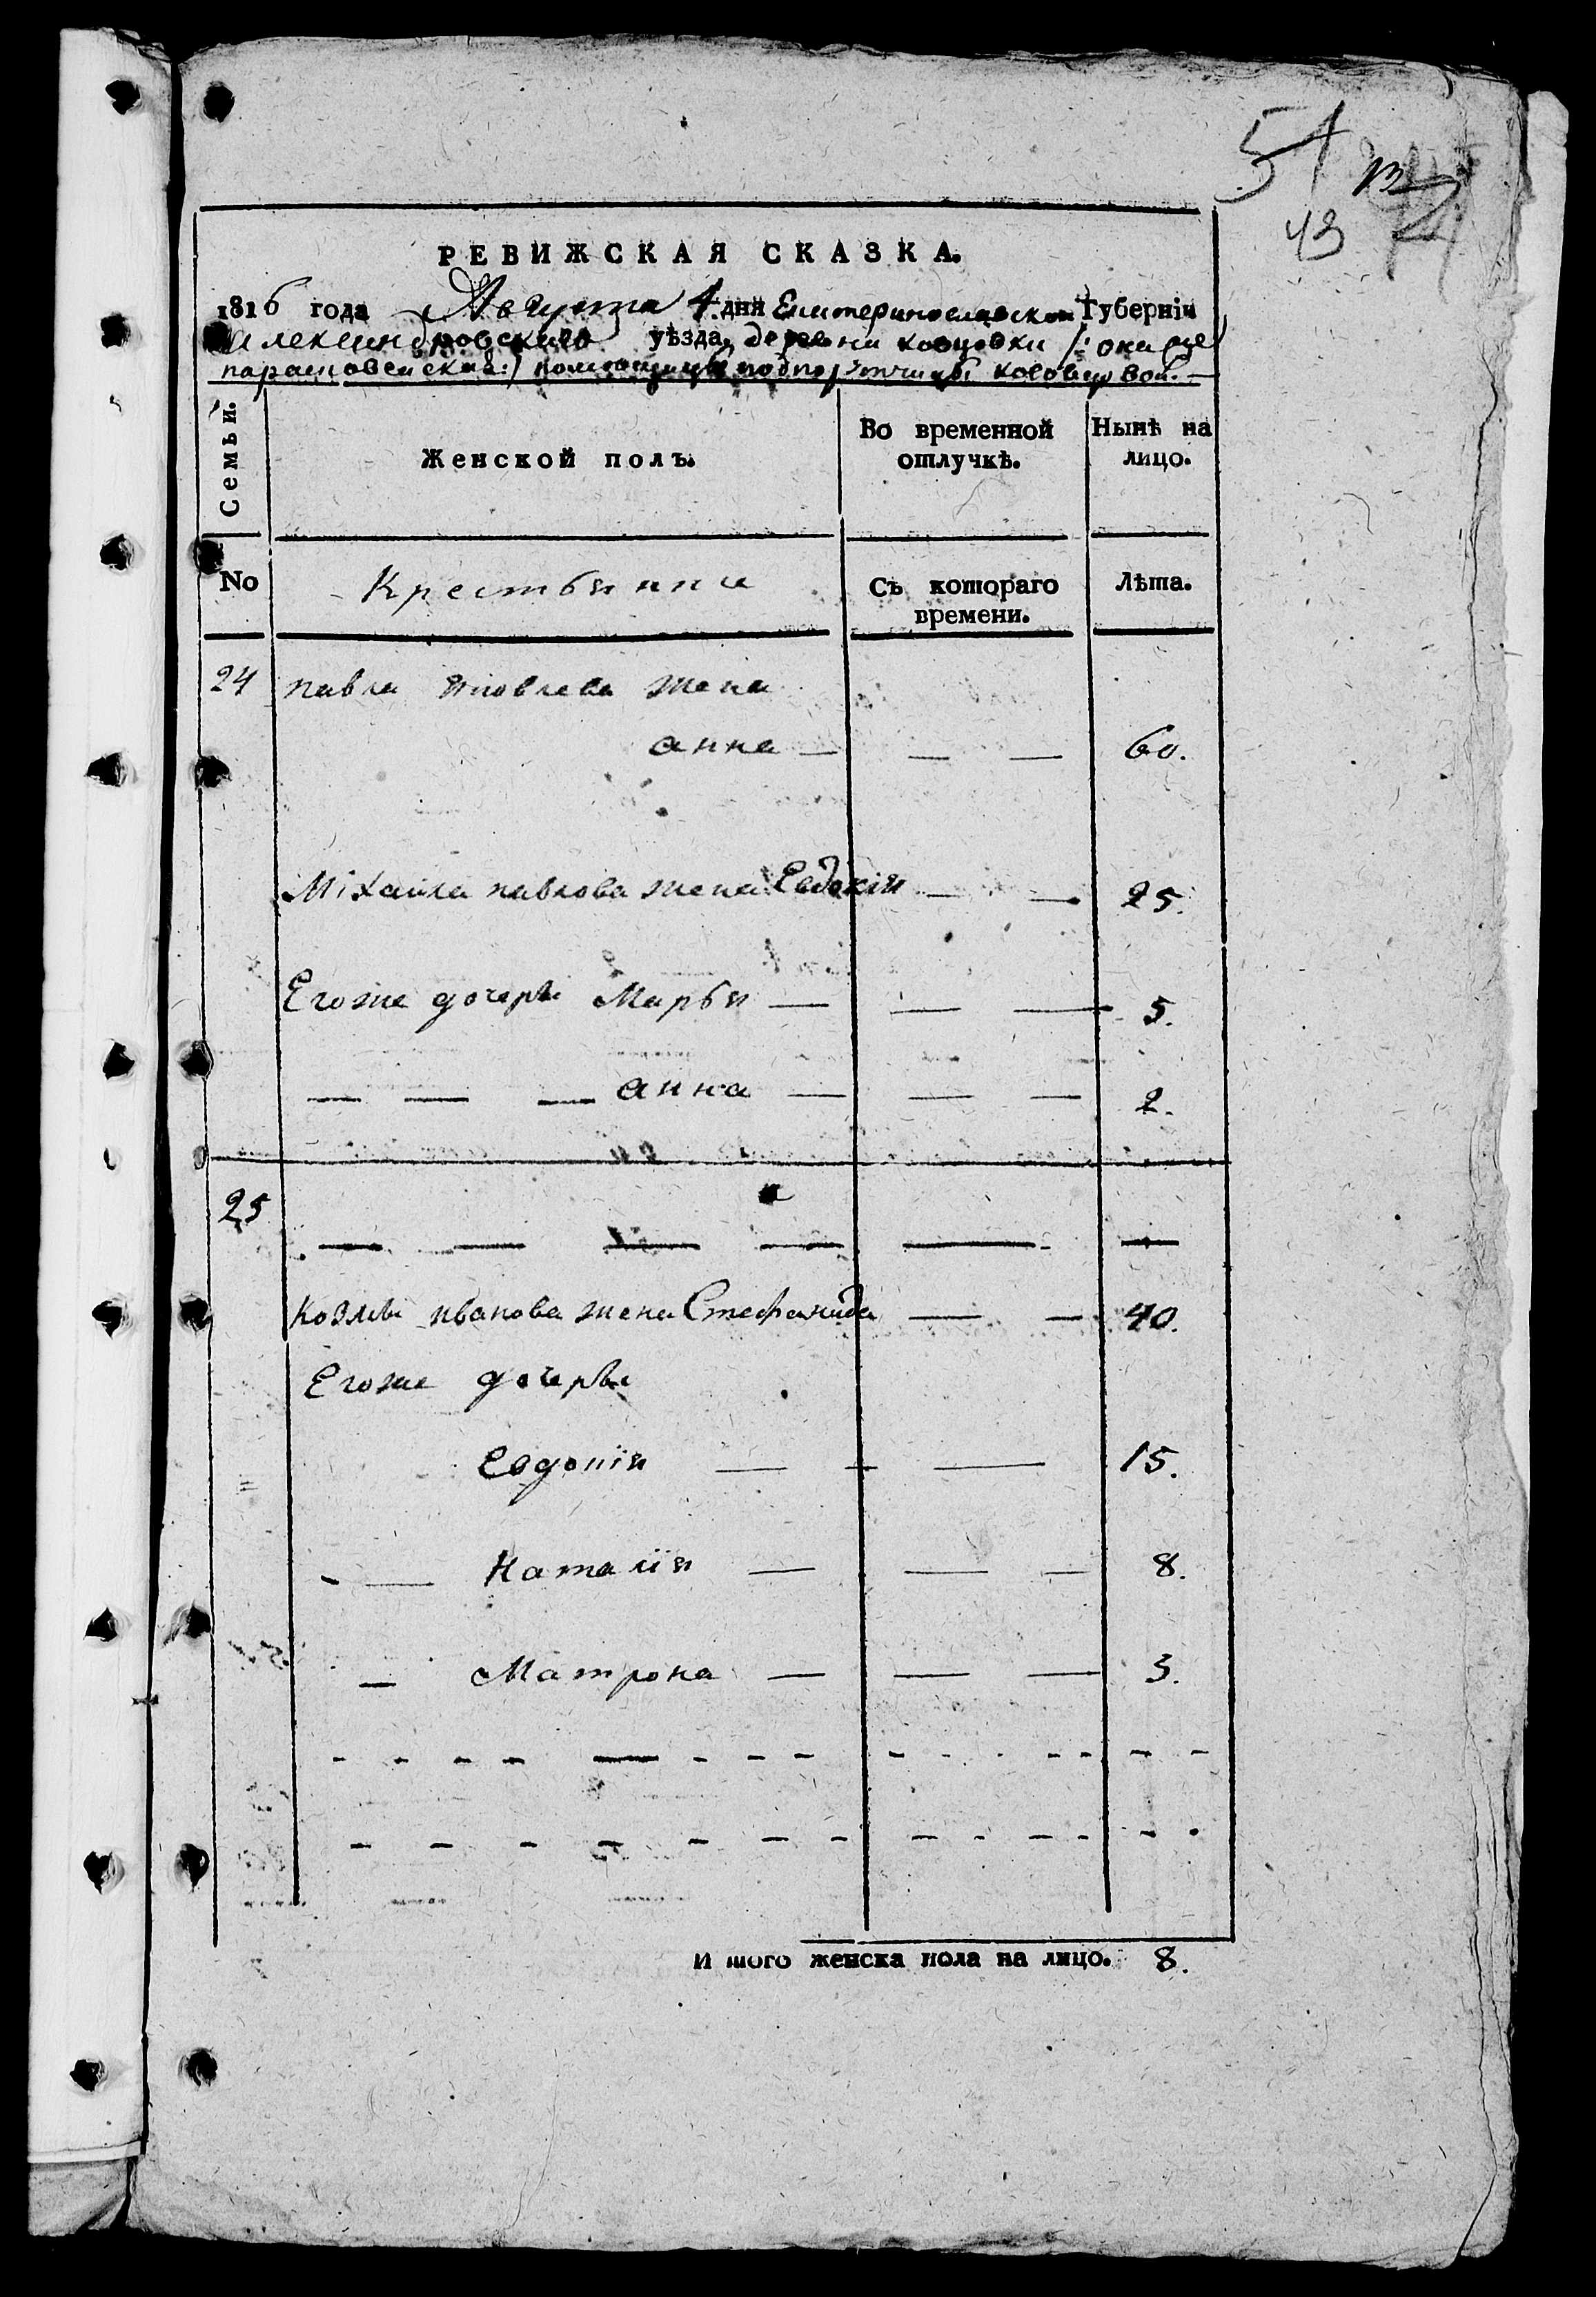 51
43
РЕВИЖСКАЯ СКАЗКА.
1816 года Августа 4. дня Екатеринославской Губерніи
Александровскаго уѣзда, деревни /: она же
:/ помещицы подпоручицы
Семьи.
Женской полъ.
Во временной отлучкѣ.
Нынѣ на лицо.
No
Крестьянки
Съ котораго времени.
Лѣта.
24 павла яковлева жена
анна — — — 60.
Міхайла павлова жена Евдокія — — 25.
Егоже дочери Марья — — — 5.
— — — анна — — — 2.
25
— — — — — —
козмы иванова жена Стефанида — — 40.
Егоже дочери
Евдокія — — — 15.
- — Наталія — — — 8.
— Матрона — — — 3.
И того женска пола на лицо. 8.